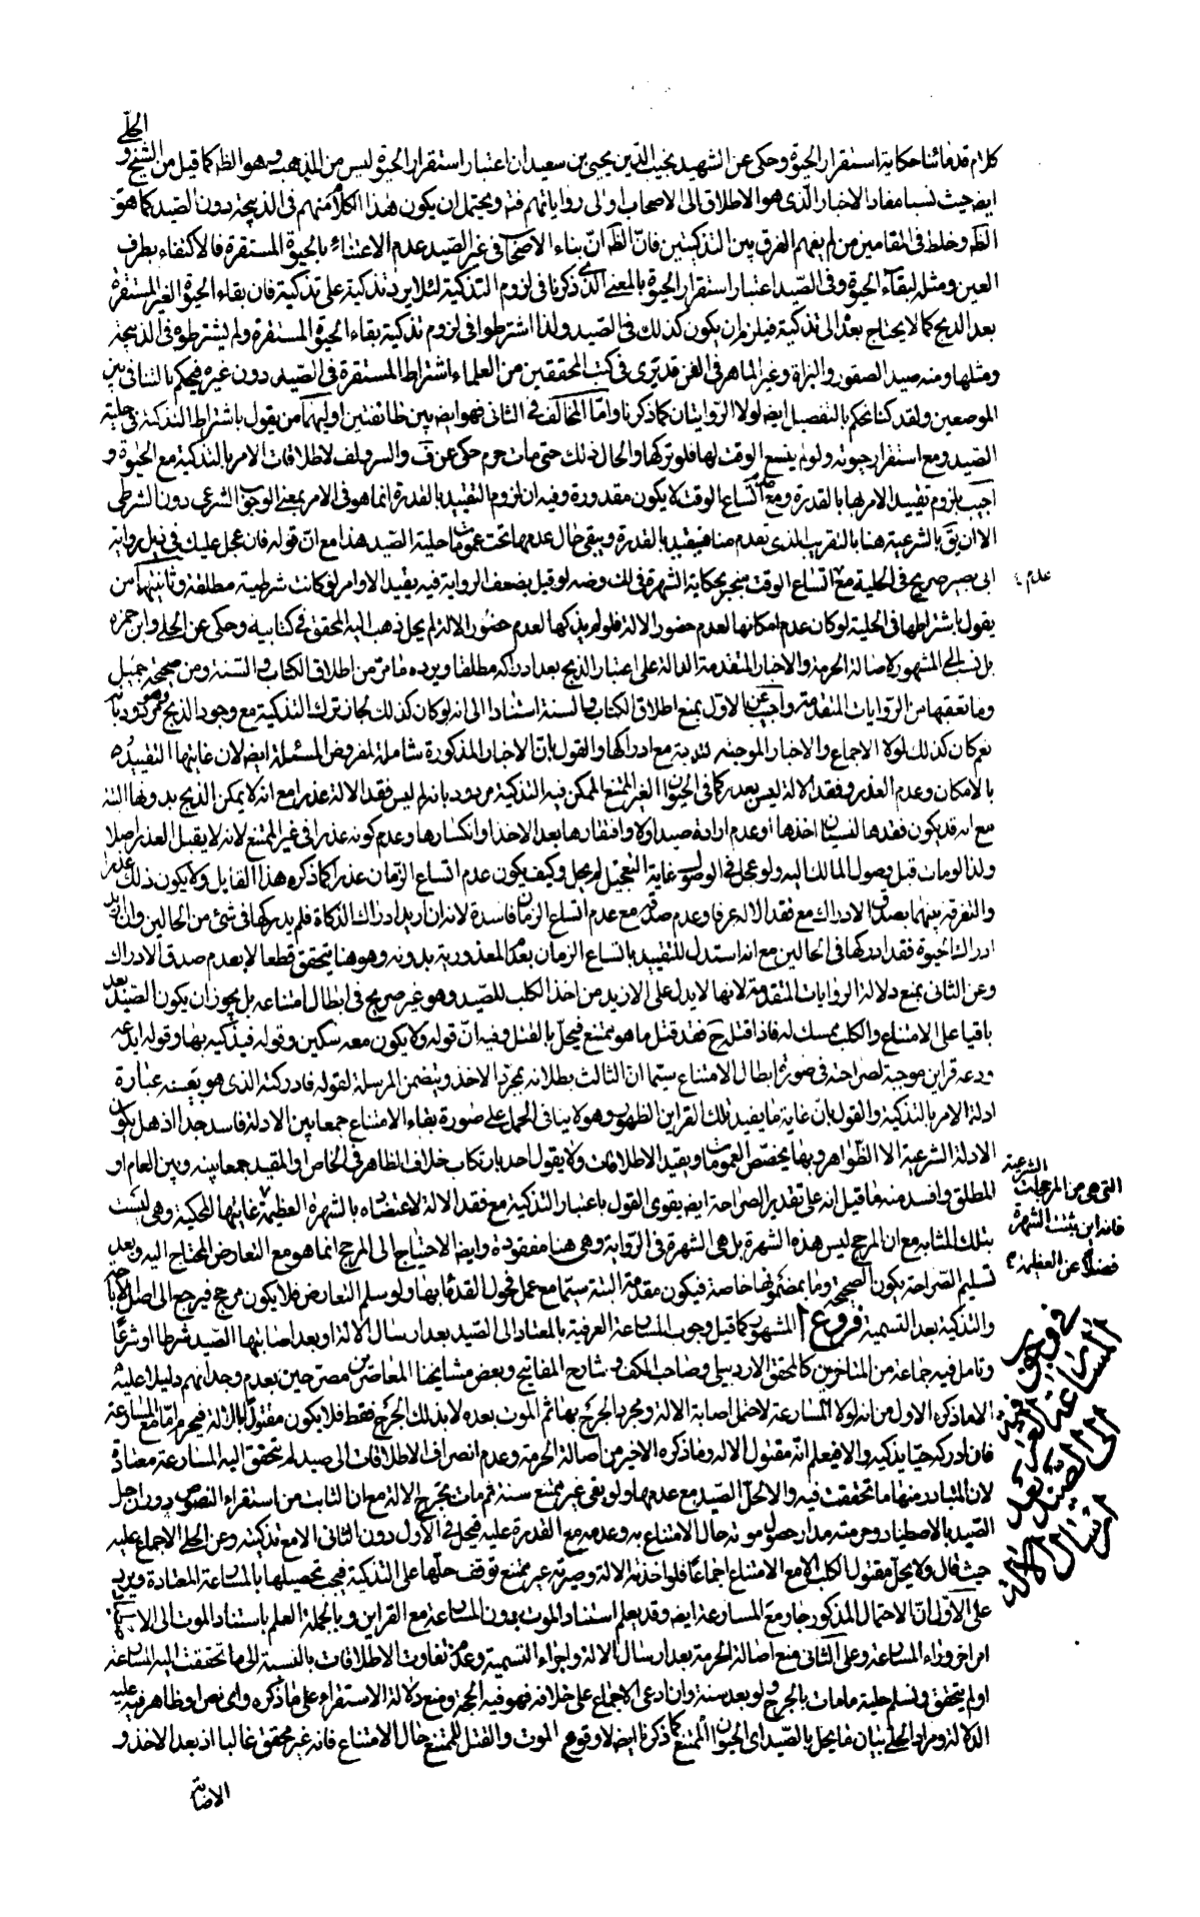 الحلّي
كلام قدمائنا حكاية استقرار الحيوة وحكى عن الشهيد نجيب الدّين يحيى بن سعيد ان اعتبار استقرار الحيوة ليس من المذهب وهو الظ كما قيل من الشيخ و
ايض حيث نسبا مفاد الاخبار الّذى هو الاطلاق الى الاصحاب او الى رواياتهم فت ويحتمل ان يكون هذا الكلام منهم فى الذبيحة دون الصّيد كما هو
الظ وخلط فى المقامين من لم يفهم الفرق بين التذكيتين فانّ الظ انّ بناء الاصحاب فى غير الصّيد عدم الاعتناء بالحيوة المستقرة فالاكتفاء بطرف
العين ومثله لبقاء الحيوة وفى الصّيد اعتبار استقرار الحيوة بالمعنى الذى ذكرنا فى لزوم التذكية لئلا يرد تذكية على تذكية فان بقاء الحيوة الغير المستقرة
بعد الذبح كما لا يحتاج بعد الى تذكية فيلزم ان يكون كذلك فى الصّيد ولذا اشترطوا فى لزوم تذكية بقاء الحيوة المستقرة ولم يشترطوه فى الذبيحة
ومثلها ومنه صيد الصقور والبزاة وغير الماهر فى الفن قد يرى فى كتب المحققين من العلماء اشتراط المستقرة فى الصّيد دون غيره فيحكم بالتنافى بين
الموضعين ولقد كنا نحكم بالتفصيل ايض لولا الروايتان كما ذكرنا وامّا المخالف فى الثانى فهو ايض بين طائفتين اوليهما من يقول باشتراط التذكية فى حلية
الصّيد ومع استقرار حيوته ولو لم يتسع الوقت لها فلو تركها والحال ذلك حتى مات حرم حكى عن ف والسر ولف لاطلاقات الامر بالتذكية مع الحيوة و
اجيب بلزوم تقييد الامر بها بالقدرة ومع عدم اتساع الوقت لا يكون مقدورة وفيه ان لزوم التقييد بالقدرة انما هو فى الامر بمعنى الوجوب الشرعى دون الشرطى
الا ان يق بالشرعية هنا بالتقريب الذى تقدم منا فيقيد بالقدرة ويبقى حال عدمها تحت عمومات حلية الصّيد هذا مع انّ قوله فان عجل عليك فى ذيل رواية
ابى بصير صريح فى الحلية مع اتساع الوقت منجبر بحكاية الشهرة فى لك وضه لو قيل بضعف الرواية فيه يقيد الاوامر لو كانت شرطية مطلقة وثانيتهما من
عدم
يقول باشتراطها فى الحلية لو كان عدم امكانها لعدم حضور الالة فلو لم يذكها لعدم حضور الالة لم يحل ذهب اليه المحقق فى كتابيه وحكى عن الحلى وابن حمزه
بل نسب الى المشهور لاصالة الحرمة والاخبار المتقدمة الدالة على اعتبار الذبح بعد ادراكه مطلقا ويرده ما مرّ من اطلاق الكتاب والسنة ومن صحيحة جميل
وما تعقبها من الروايات المتقدمة واجيب عن الاوّل بمنع اطلاق الكتاب والسنة استنادا الى انه لو كان كذلك لجاز ترك التذكية مع وجود الذبح وهو مردود بانه
نعم كان كذلك لولا الاجماع والاخبار الموجبه للتذكية مع ادراكها والقول بانّ الاخبار المذكورة شاملة لمفروض المسئلة ايض لان غايتها التقييد
بالامكان وعدم العذر وفقد الالة ليس بعذر كما فى الحيوان الغير الممتنع الممكن فيه التذكية مردود بانه لم ليس فقد الالة عذرا مع انه لا يمكن الذبح بدونها البتة
مع انه قد يكون فقدها لنسيان اخذها او عدم ارادة صيد اولا وافتقارها بعد الاخذ او انكسارها وعدم كونه عذرا فى غير الممتنع لانه لا يقبل العذر اصلا
ولذا لو مات قبل وصول المالك اليه ولو عجل فى الوصول غاية التعجيل لم يحل وكيف يكون عدم اتساع الزمان عذرا كما ذكره هذا القايل ولا يكون ذلك عذرا
والتفرقة بينهما بصدق الادراك مع فقد الالة عرفا وعدم صدقه مع عدم اتساع الزمان فاسدة لانه ان اريد ادراك الذكاة فلم يدركها فى شئ من الحالين وان اريد
ادراك الحيوة فقد ادركها فى الحالين مع انه استدل للتقييد باتساع الزمان بعدم المقدورية بدونه وهو هنا يتحقق قطعا لا بعدم صدق الادراك
وعن الثانى بمنع دلالة الروايات المتقدمة لانها لا يدل على الازيد من اخذ الكلب للصّيد وهو غير صريح فى ابطال امتناعه بل يجوز ان يكون الصّيد بعد
باقيا على الامتناع والكلب ممسك له فاذا قتله ح فقد قتل ما هو ممتنع فيحلّ بالقتل وفيه انّ قوله ولا يكون معه سكين وقوله فيذكيه بها وقوله ايدعه
ودعه قراين موجبة لصراحته فى صورة ابطال الامتناع سيّما انّ الثالث بطلانه بمجرّد الاخذ ويتضمن المرسلة لقوله فادركته الذى هو بعينه عبارة
ادلة الامر بالتذكية والقول بانّ غاية ما يفيد تلك القراين الظهور وهو لا ينافى الحمل على صورة بقاء الامتناع جمعا بين الادلة فاسد جدا اذ هل يكون
الادلة الشرعية الا الظواهر وبها يخصّص العمومات ويقيد الاطلاقات ولا يقول احد بارتكاب خلاف الظاهر فى الخاص او المقيد جمعا بينه وبين العام او
المطلق وافسد منه ما قيل انه على تقدير الصّراحة ايض يقوى القول باعتبار التذكية مع فقد الالة لاعتضاده بالشهرة العظيمة غايتها المحكية وهى ليست
الشرعية
التى هى من المرجحات
فانه اين يثبت الشهرة
فضلا عن العظيمة
بتلك المثابة مع ان المرجح ليس هذه الشهرة بل هى الشهرة فى الرواية وهى هنا مفقودة وايضا الاحتياج الى المرجح انما هو مع التعارض المحتاج اليه وبعد
تسليم الصّراحة يكون الصحيحة وما بمضمونها خاصة فيكون مقدمة البتة سيّما مع عمل فحول القدماء بها ولو سلم التعارض فلا يكون مرجح فيرجع الى اصل الاباحة
والتذكية بعد التسمية فروع ا المشهور كما قيل وجوب المسارعة العرفية بالمعتاد الى الصّيد بعد ارسال الالة او بعد اصابتها الصّيد شرطا او شرعًا
فى وجوب
المسارعة العرفية
الى الصّيد بعد
ارسال الالة
وتامل فيه جماعة من المتاخرين كالمحقق الاردبيلى وصاحب المكف وشارح المفاتيح وبعض مشايخنا المعاصرين مصرحين بعدم وجدانهم دليلا عليه
الا ما ذكره الاول من انه لولا المسارعة لاحتمل اصابة الالة ومجرد الجرح بها ثم الموت بعده لا بذلك الجرح فقط فلا يكون مقتولا بالالة فيحرم امّا مع المسارعة
فان ادركه حيّا يذكيه والا فيعلم انّه مقتول الالة وما ذكره الاخير من اصالة الحرمة وعدم انصراف الاطلاقات الى صيد لم يتحقق اليه المسارعة معتادة
لان المتبادر منها ما تحققت فيه والا لحلّ الصّيد مع عدمها ولو بقى غير ممتنع سنة ثم مات بجرح الالة مع ان الثابت من استقراء النصوص دوران حل
الصّيد بالاصطياد وحرمته مدار حصول موته حال الامتناع به وعدمه مع القدرة عليه فيحل فى الاول دون الثانى الا مع تذكيته وعن الحلى الاجماع عليه
حيث قال ولا يحل مقتول الكلب الا مع الامتناع اجماعا فلو اخذته الالة وصيرته غير ممتنع توقف حلها على التذكية فيجب تحصيلها بالمسارعة المعتادة ويرد
على الاوّل انّ الاحتمال المذكور جار مع المسارعة ايض وقد يعلم استناد الموت بدون المسارعة مع القراين وبالجملة العلم باستناد الموت الى الاسباب
امر اخر وراء المسارعة وعلى الثانى منع اصالة الحرمة بعد ارسال الالة واجراء التسمية وعدم تفاوت الاطلاقات بالنسبة الى ما تحققت اليه المسارعة
او لم يتحقق ونسلم حلية ما مات بالجرح ولو بعد سنة وان ادعى الاجماع على خلافه فهو فيه الحجة ومنع دلالة الاستقراء على ما ذكره واى نص او ظاهر فيه عليه
الدلالة ومراد الحلى بيان ما يحل بالصّيد اى الحيوان الممتنع كما ذكره ايض لا وقوع الموت والقتل للممتنع حال الامتناع فانه غير محقق غالبا اذ بعد الاخذ و
الاصابة